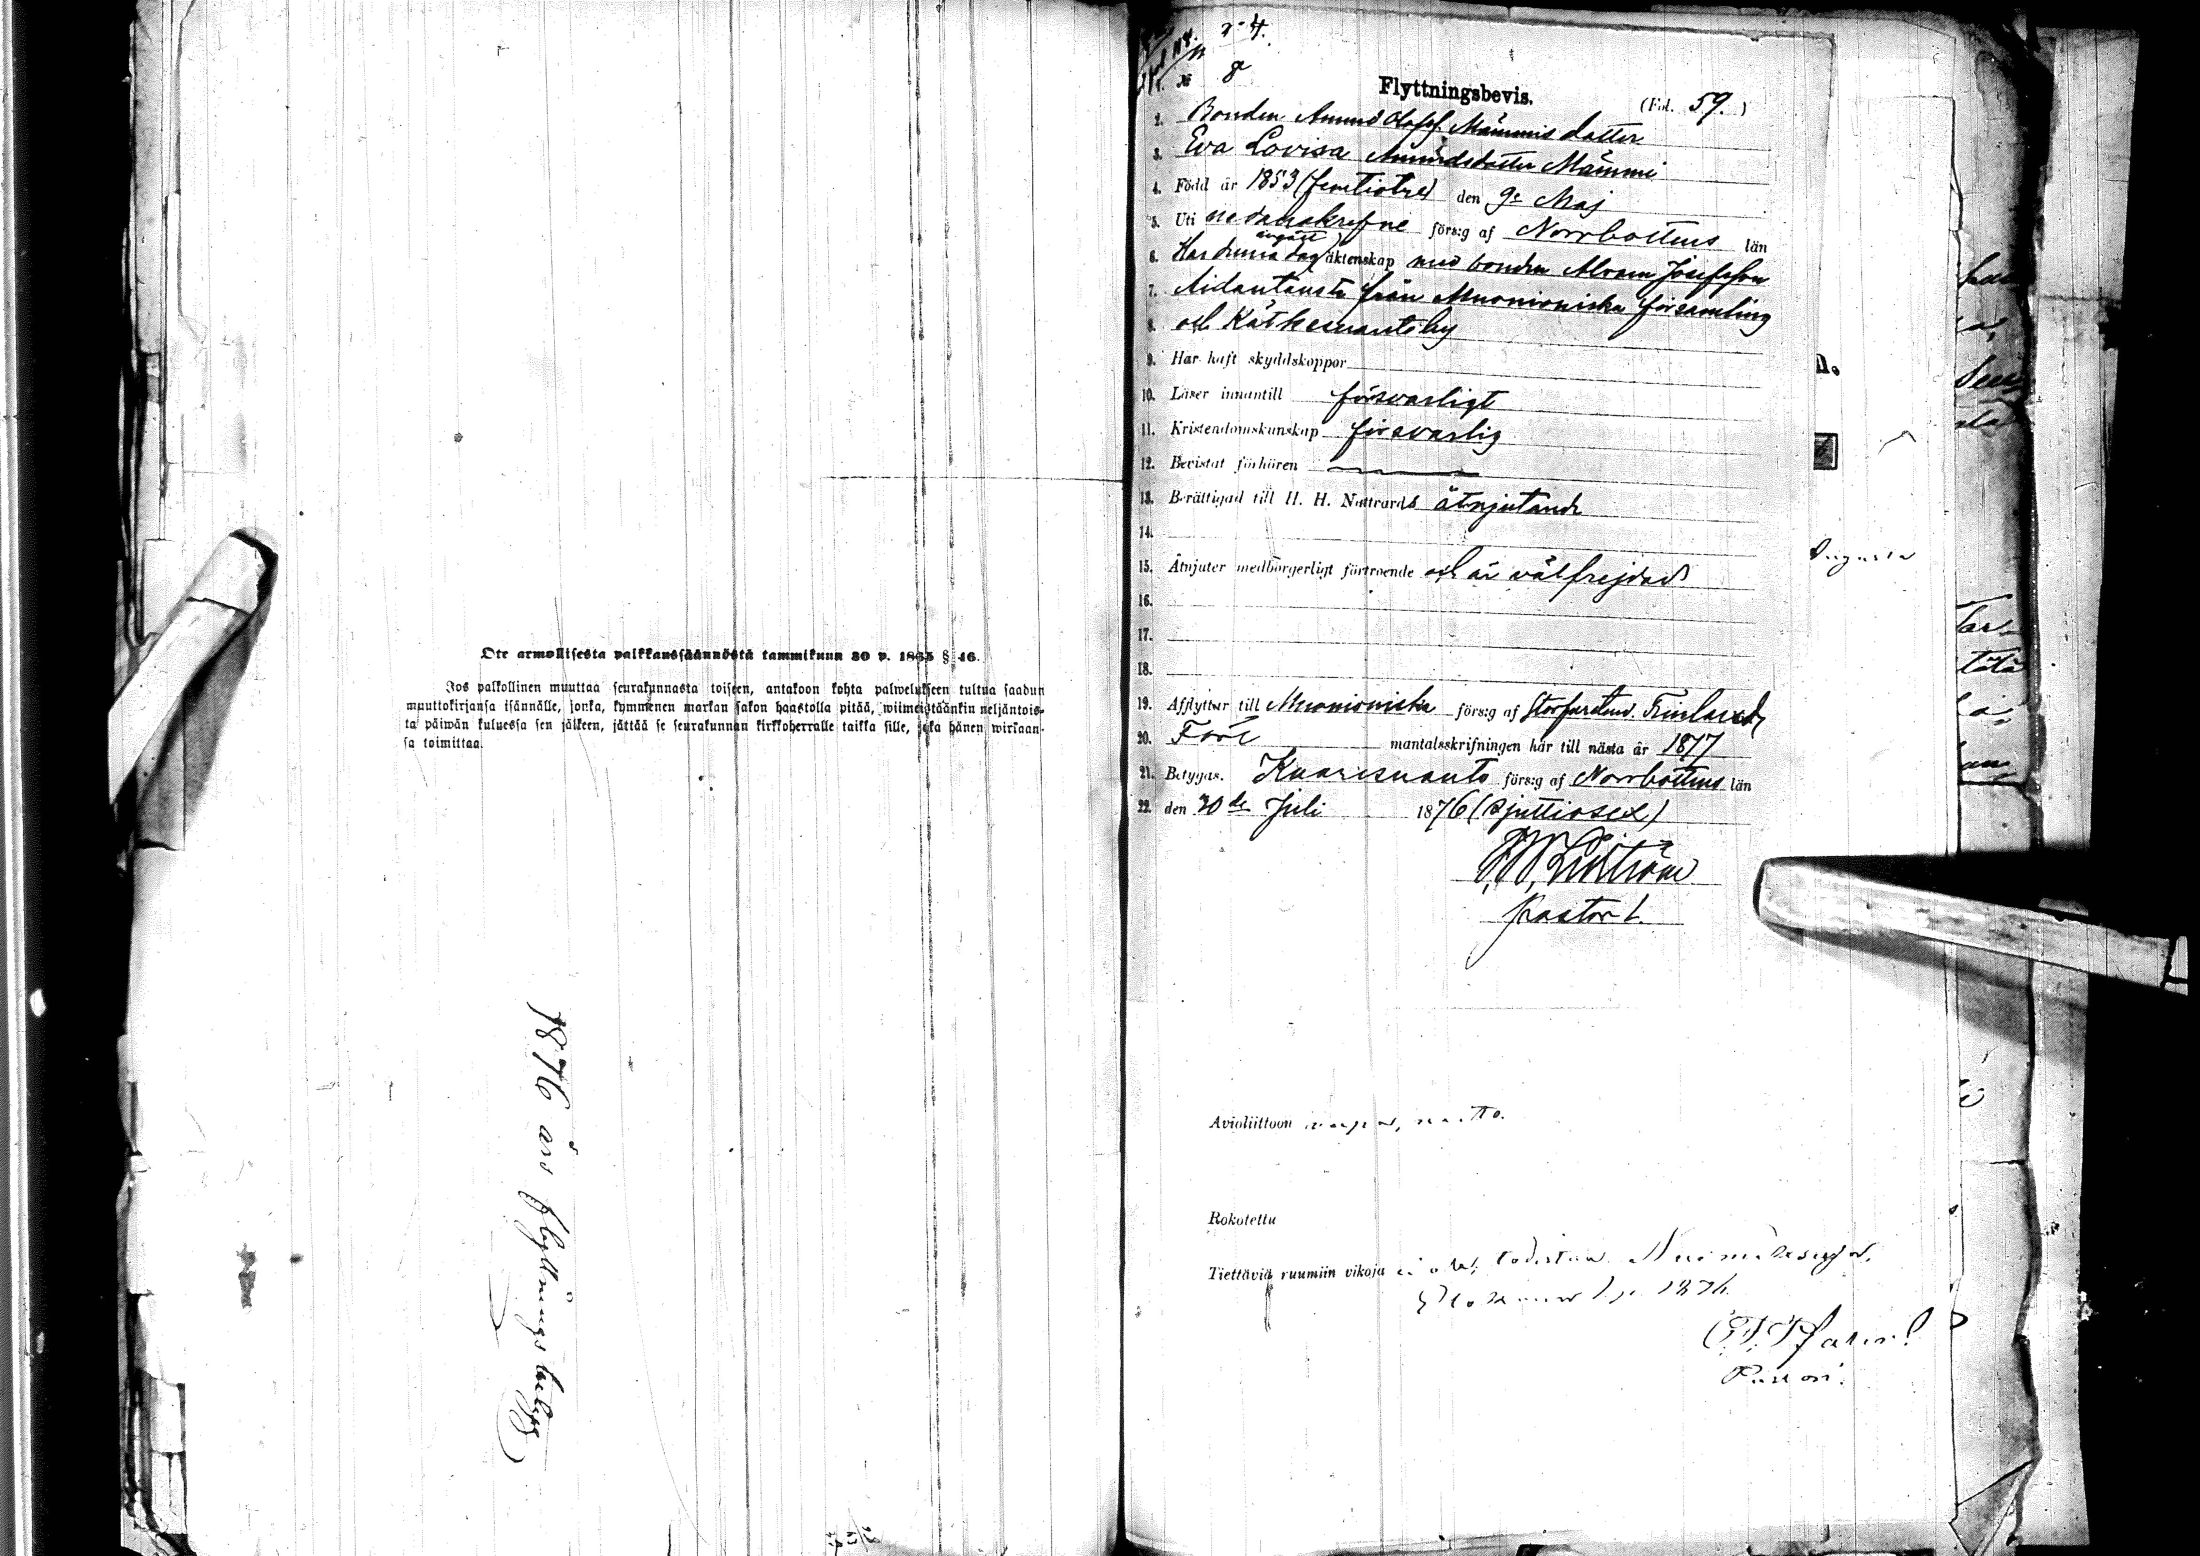 Ote armollisesta palkkaussäännöstä tammikuun 30 p. 1865 § 46.
Jos palkollinen muuttaa seurakunnasta toiseen, antakoon kohta palwelukseen tultua saadun
muuttokirjansa isännälle, jonka, kymmenen markan sakon haastolla pitää, wiimeistäänkin neljäntois-
ta päiwän kuluessa sen jälkeen, jättää se seurakunnan kirkkoherralle taikka sille, joka hänen wirkaan-
sa toimittaa.
1876 års flyttningsbetyg
№ 8
Flyttningsbevis.
(Fol. 59.)
2. Bonden Amund Olofss. Mämmis dotter
3. Eva Lovisa Amundsdotter Mämmi
4. Född år 1853 (femtiotre) den 9e Maj
5. Uti nedanskrefne förs:g af Norrbottens län
ingått
6. Har denna dag äktenskap med bonden Abram Josefsson
7. från Muonioniska församling
8. och Kätkesuanto by
9. Har haft skyddskoppor
10. Läser innantill försvarligt
11. Kristendomskunskap försvarlig
12. Bevistat förhören
13. Berättigad till H. H. Nattvards åtnjutande
14.
15. Åtnjuter medborgerligt förtroende och är välfrejdad
16.
17.
18.
19. Afflyttar till Muonioniska förs:g af Storfurstend. Finland,
20. Före mantalsskrifningen här till nästa år 1877
21. Betygas. Karesuanto förs:g af Norrbottens län
22. den 20de Juli 1876 (sjuttiosex)
Pastor
Avioliittoon
Rokotettu
Tiettäviä ruumiin vikoja ei ole, todistaa
1876.